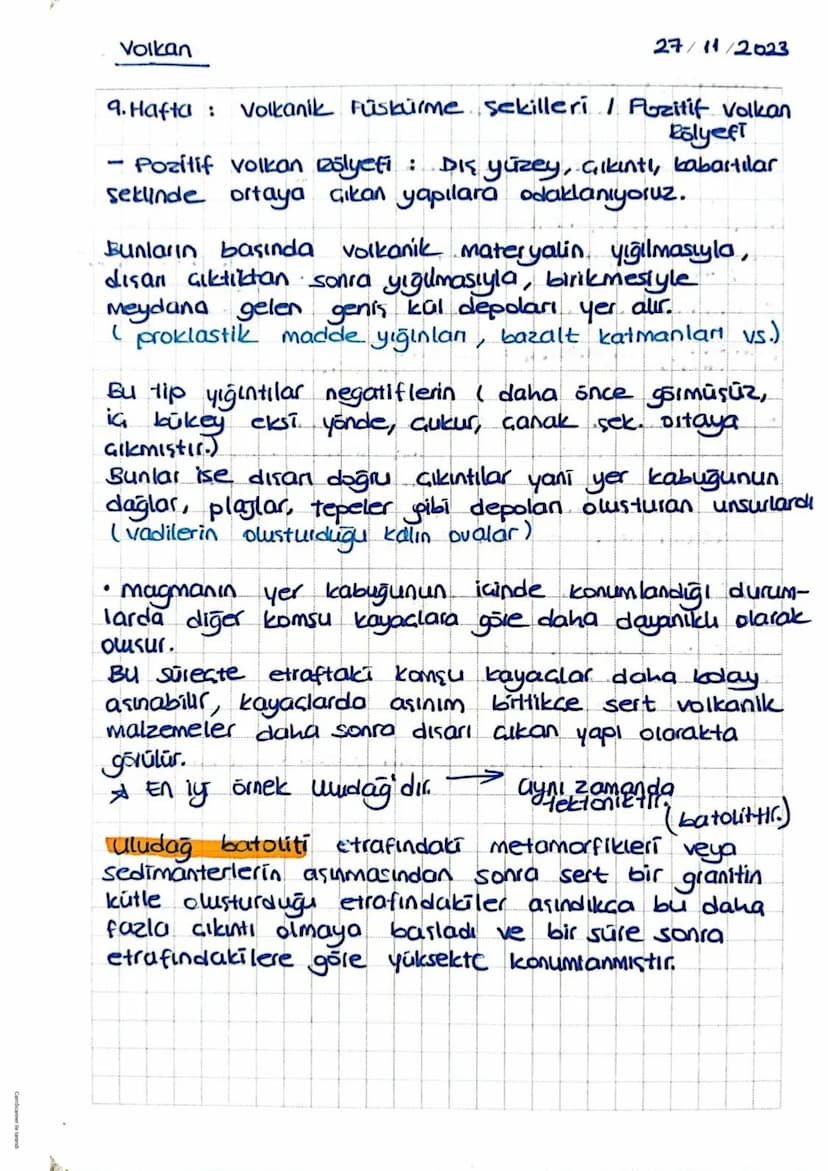 Volkan
27/11/2023
9.Hafta : Volkanik Füskürme şekilleri / Pozitif Volkan
Rölyefi
- Pozitif volkan Rölyefi : Dış yüzey, çıkıntı, kabartılar
seklinde ortaya çıkan yapılara odaklanıyoruz.
Bunların başında volkanik materyalin yığılmasıyla,
dışarı çıktıktan sonra yığılmasıyla, birikmesiyle
meydana gelen geniş kül depoları yer alır.
( proklastik madde yığınları, bazalt katmanları vs.)
Bu tip yığıntılar negatiflerin ( daha önce görmüşüz,
iç bükey eksi yönde, çukur, çanak şek. ortaya
çıkmıştır.)
Bunlar ise dışarı doğru çıkıntılar yani yer kabuğunun
dağlar, plajlar, tepeler gibi depoları oluşturan unsurlardı
(vadilerin oluşturduğu kalın ovalar)
• magmanın yer kabuğunun içinde konumlandığı durum-
larda diğer komşu kayaçlara göre daha dayanıklı olarak
oluşur.
Bu süreçte etraftaki komşu kayaçlar daha kolay
aşınabilir, kayaçlarda aşınım bittikçe sert volkanik
malzemeler daha sonra dışarı çıkan yapı olarakta
görülür.
☆ En iyi örnek Uludağ'dır. → aynı zamanda
tektoniktir.
(batolittir.)
Uludağ batoliti etrafındaki metamorfikleri veya
sedimanterlerin aşınmasından sonra sert bir granitin
kütle oluşturduğu etrafındakiler aşındıkça bu daha
fazla çıkıntı olmaya başladı ve bir süre sonra
etrafındakilere göre yüksekte konumlanmıştır.
CamScanner ile tarandı